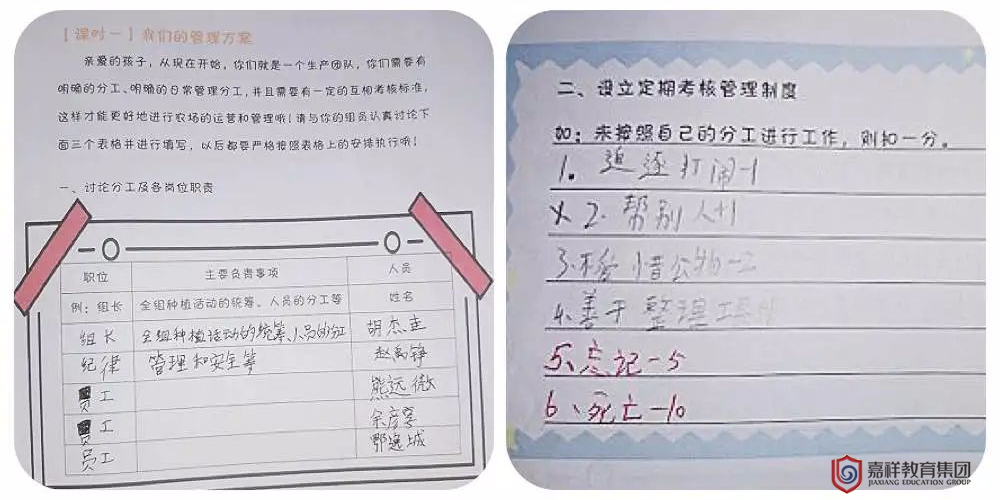 【课时一】我们的管理方案
亲爱的孩子，从现在开始，你们就是一个生产团队，你们需要有
明确的分工、明确的日常管理分工，并且需要有一定的互相考核标准，
这样才能更好地进行农场的运营和管理哦！请与你的组员认真讨论下
面三个表格并进行填写，以后都要严格按照表格上的安排执行哦！
一、讨论分工及各岗位职责
职位 主要负责事项 人员
例：组长 全组种植活动的统筹、人员的分工等 姓名
组长 全组种植活动的统筹、人员的分工 胡杰圭
纪律 管理和安全等 赵禹铮
员工 熊远微
员工 余彦
员工 鄂逸城
二、设立定期考核管理制度
如：未按照自己的分工进行工作，则扣一分。
1. 追逐打闹-1
2. 帮别人+1
3.不爱惜公物-2
4、善于整理工具
5、忘记-5
6、死亡-10
嘉祥教育集团
JIAXIANG EDUCATION GROUP